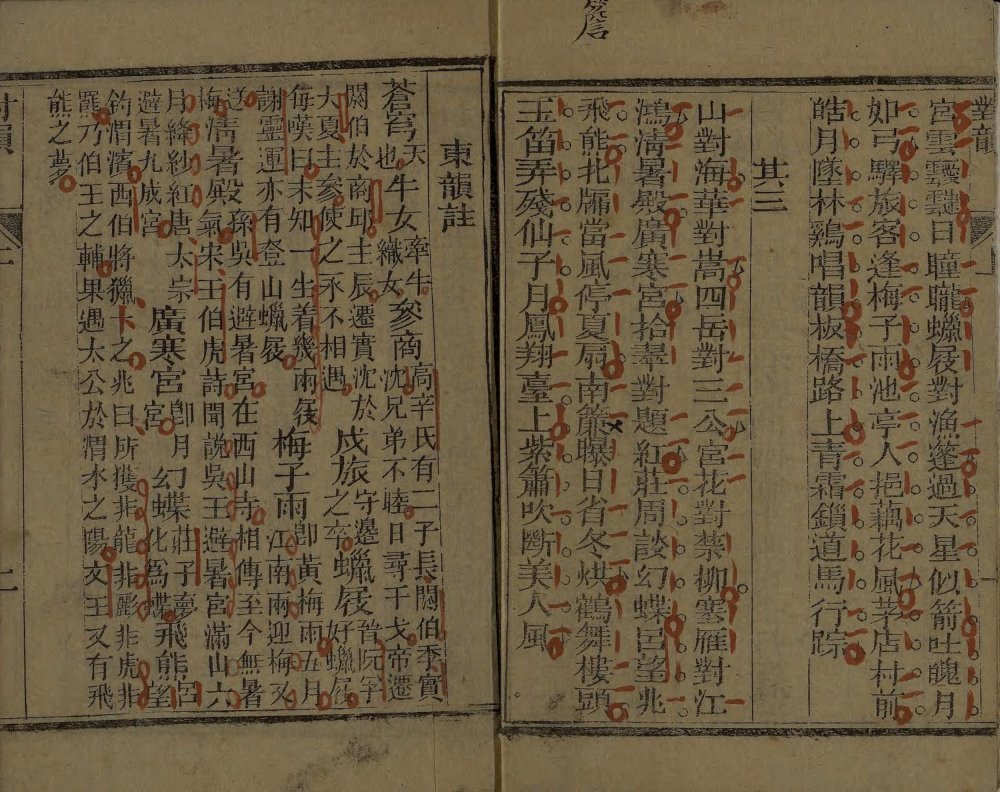 對韻
宮雲靉靆日曈曨蠟屐對漁蓬過天星似箭吐魄月
如弓驛旅客逢梅子雨池亭人挹藕花風茅店村前
皓月墜林鷄唱韻板橋路上青霜鎖道馬行踪
其三
山對海華對嵩四岳對三公宮花對禁柳塞雁對江
鴻淸暑殿廣寒宮拾翠對題紅莊周談幻蝶呂望兆
飛熊北牖當風停夏扇南簾曝日省冬烘鶴舞樓頭
玉笛弄殘仙子月鳳翔臺上紫簫吹斷美人風
東韻註
蒼穹天也牛女牽牛織女參商高辛氏有二子長閼伯季實
沈兄弟不睦日尋干戈帝遷
閼伯於商邱主辰遷實沈於
大夏主參使之永不相遇戍旅守邊之卒蠟屐晉阮孚好蠟屐
每嘆曰未知一生着幾兩屐
謝靈運亦有登山蠟屐梅子雨卽黃梅雨五月江南雨迎梅又
送梅淸暑殿孫吳有避暑宮在西山寺相傳至今無暑
氣宋王伯虎詩聞說吳王避暑宮滿山六
月絳紗紅唐太宗
避暑九成宮廣寒宮卽月宮幻蝶莊子夢化爲蝶飛熊呂望
釣渭濱西伯將獵卜之兆曰所獲非龍非彲非虎非
羆乃伯王之輔果遇太公於渭水之陽文王又有飛
熊之夢
對韻